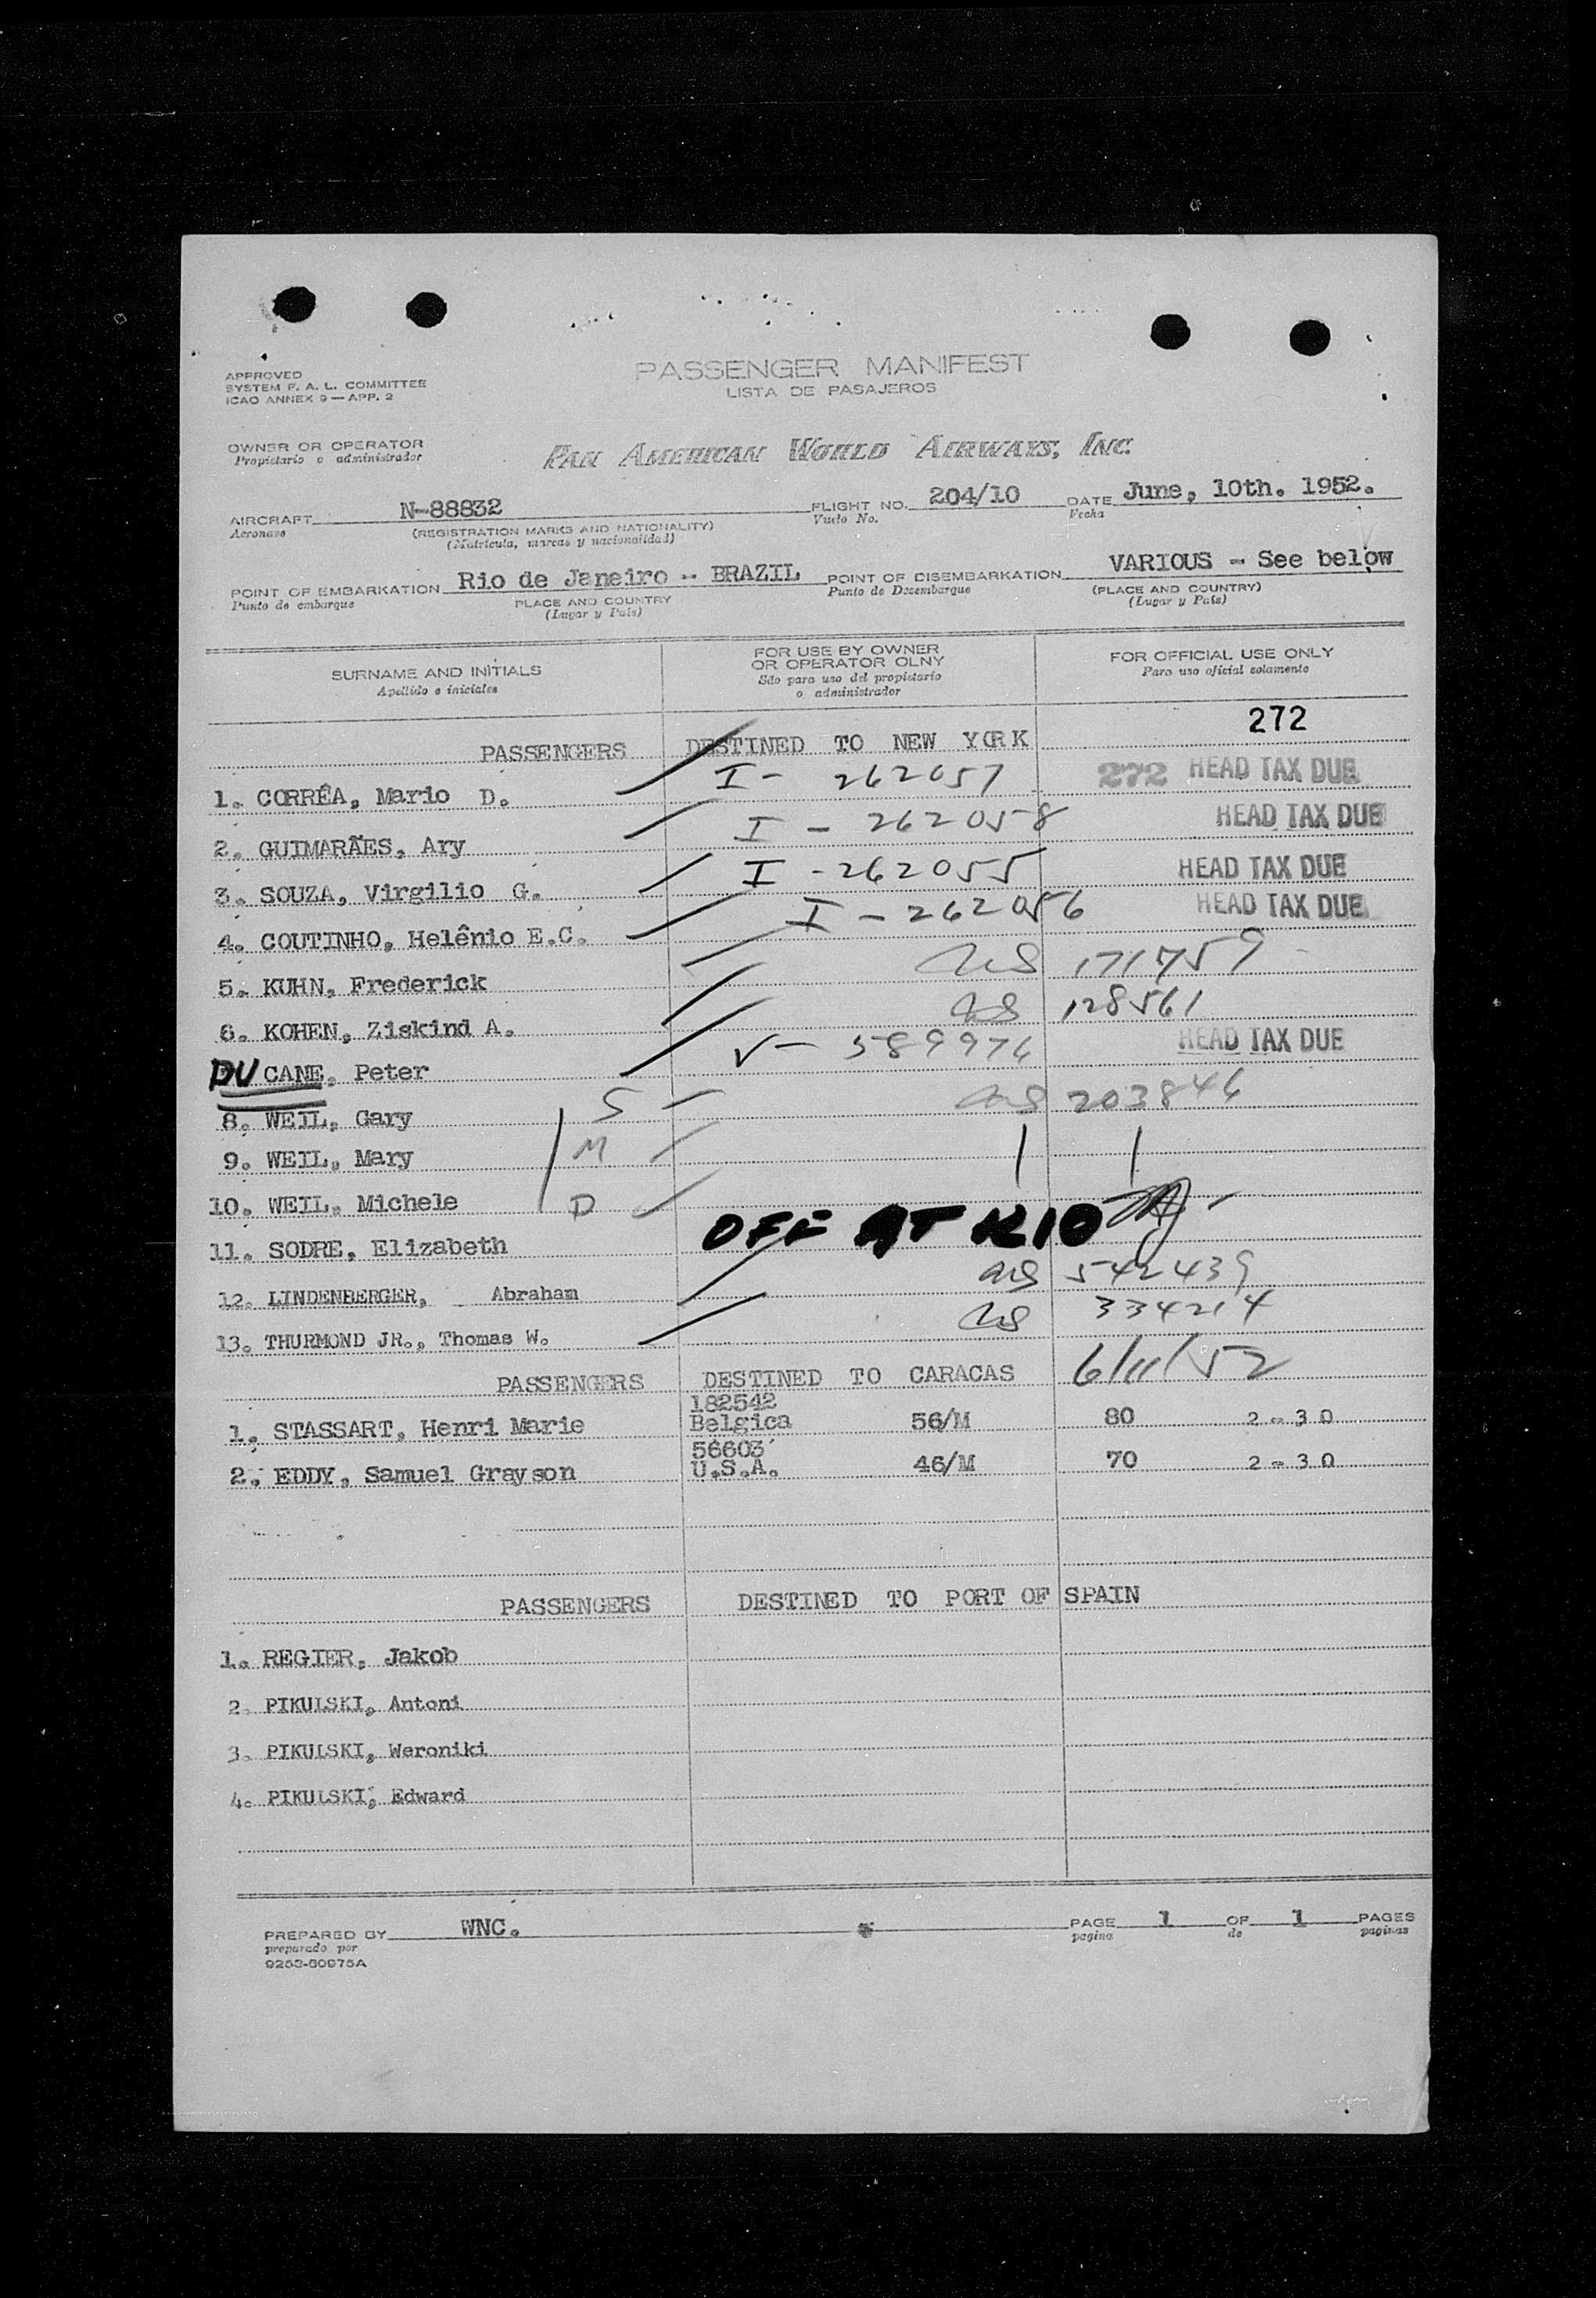 PASSENGER MANIFEST
LISTA DE PASAJEROS
APPROVED
SYSTEM F. A. L. COMMITTEE
ICAO ANNEX 9 — APP. 2
OWNER OR OPERATOR PAN AMERICAN WORLD AIRWAYS, INC.
Propietario o administrador
AIRCRAFT N-88832 FLIGHT NO. 204/10 DATE June, 10th. 1952.
Aeronave (REGISTRATION MARKS AND NATIONALITY) Vuelo No. Fecha
(Matrícula, marcas y nacionalidad)
POINT OF EMBARKATION Rio de Janeiro -- BRAZIL POINT OF DISEMBARKATION VARIOUS - See below
Punto de embarque PLACE AND COUNTRY Punto de Desembarque (PLACE AND COUNTRY)
(Lugar y País) (Lugar y País)
SURNAME AND INITIALS FOR USE BY OWNER OR OPERATOR OLNY FOR OFFICIAL USE ONLY
Apellido e iniciales Sdo para uso del propietario o administrador Para uso oficial solamente
272
PASSENGERS DESTINED TO NEW YORK
1. CORRÊA, Mario D. I - 262057 272 HEAD TAX DUE
2. GUIMARÃES, Ary I - 262058 HEAD TAX DUE
3. SOUZA, Virgilio G. I - 262055 HEAD TAX DUE
4. COUTINHO, Helênio E.C. I - 262056 HEAD TAX DUE
5. KUHN, Frederick US 171759
6. KOHEN, Ziskind A. US 128561
DU CANE, Peter V - 589976 HEAD TAX DUE
8. WEIL, Gary S US 203846
9. WEIL, Mary M
10. WEIL, Michele D
11. SODRE, Elizabeth OFF AT RIO
12. LINDENBERGER, Abraham US 542439
13. THURMOND JR., Thomas W. US 334214
PASSENGERS DESTINED TO CARACAS 6/11/52
1. STASSART, Henri Marie 182542 Belgica 56/M 80 2-30
2. EDDY, Samuel Grayson 56603 U.S.A. 46/M 70 2-30
PASSENGERS DESTINED TO PORT OF SPAIN
1. REGIER, Jakob
2. PIKULSKI, Antoni
3. PIKULSKI, Weroniki
4. PIKULSKI, Edward
PREPARED BY WNC. PAGE 1 OF 1 PAGES
preparado por pagina de paginas
9253-60975A